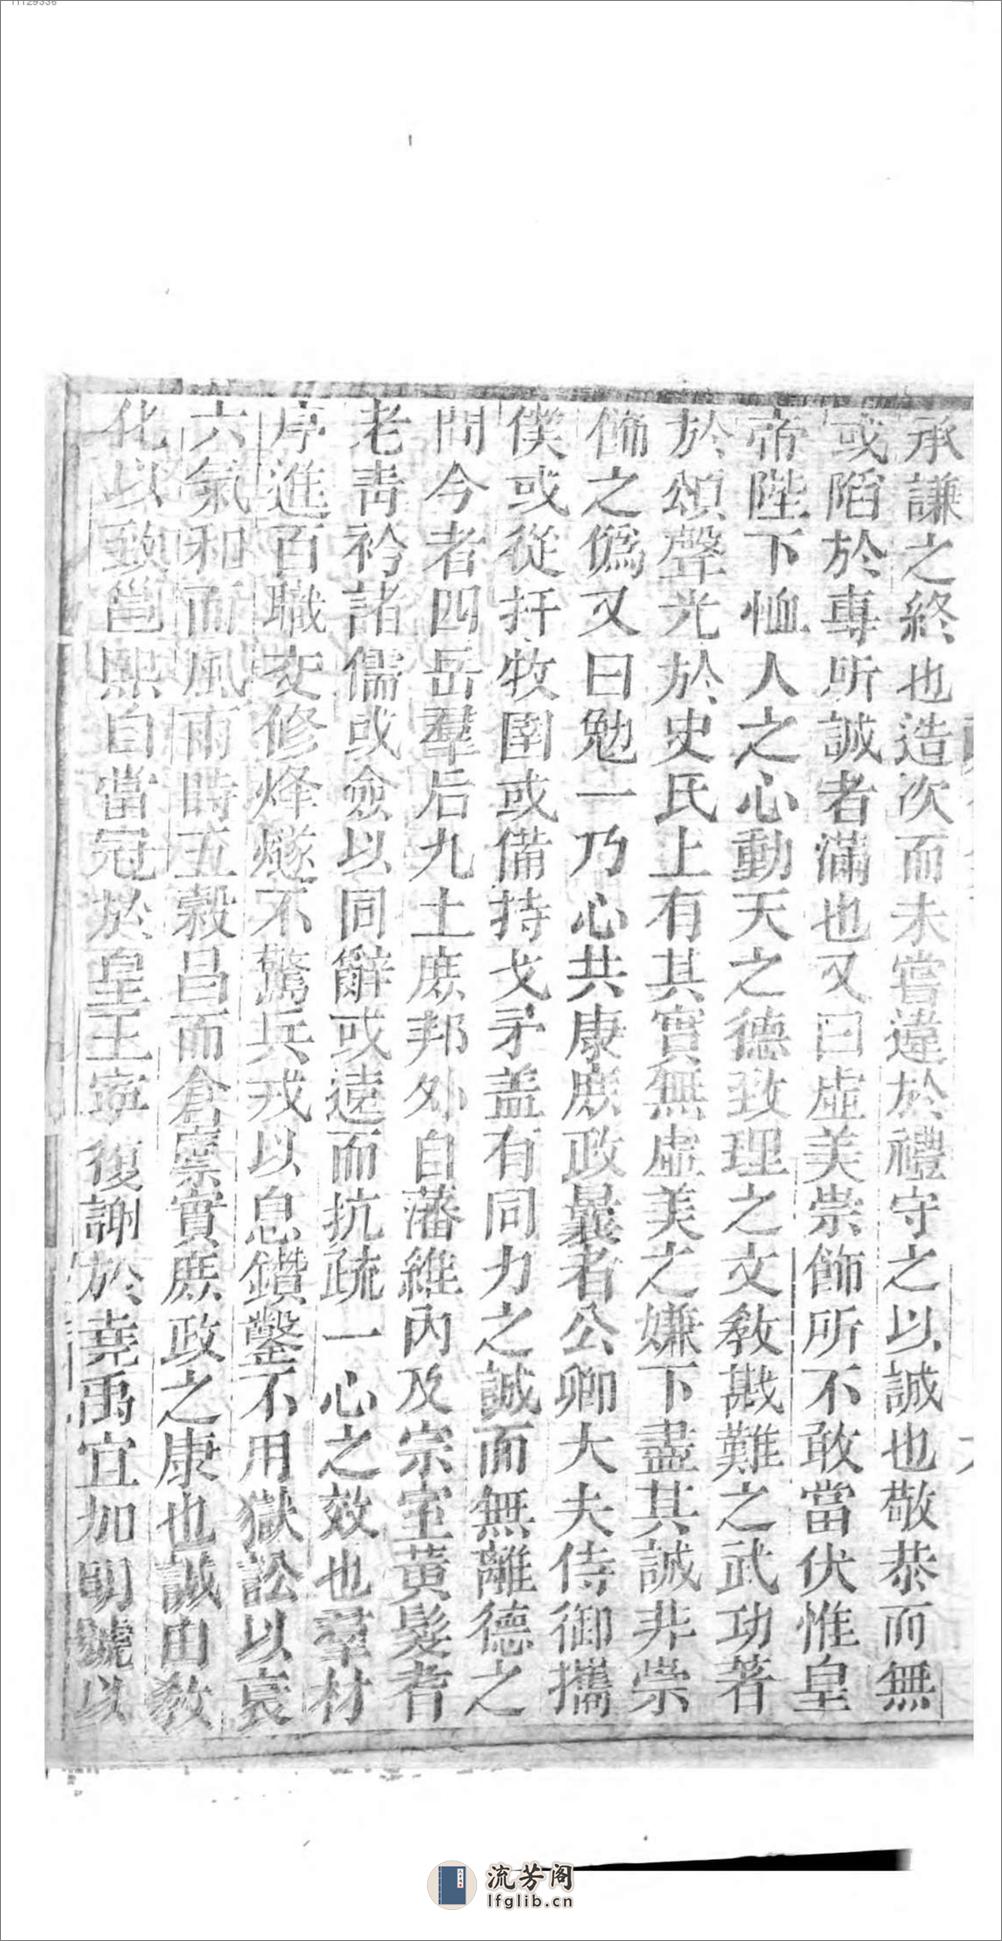 承謙之終也造次而未嘗違於禮守之以誠也敬恭而無
或陷於專所誠者滿也又曰虛美崇飾所不敢當伏惟皇
帝陛下恤人之心動天之德致理之文教戡難之武功著
於頌聲光於史氏上有其實無虛美之嫌下盡其誠非崇
飾之僞又曰勉一乃心共康庶政曩者公卿大夫侍御攜
僕或從扞牧圉或備持戈矛盖有同力之誠而無離德之
間今者四岳羣后九土庶邦外自藩維內及宗室黃髮耆
老靑衿諸儒或僉以同辭或遠而抗疏一心之效也羣材
序進百職交修烽燧不驚兵戎以息鑽鑿不用獄訟以哀
六氣和而風雨時五穀昌而倉廩實庶政之康也誠由敎
化以致邕熙自當冠於皇王寧復謝於堯禹宜加明號以
流芳阁
lfglib.cn